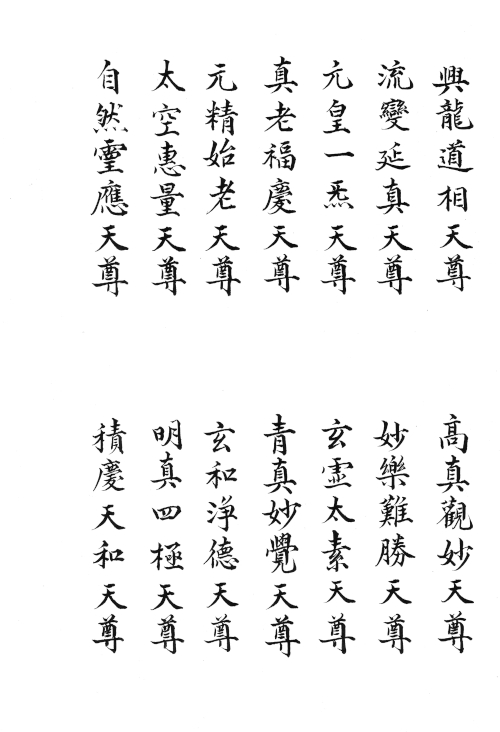 興龍道相天尊
高真觀妙天尊
流變延真天尊
妙樂難勝天尊
元皇一炁天尊
玄虛太素天尊
真老福慶天尊
青真妙覺天尊
元精始老天尊
玄和淨德天尊
太空惠量天尊
明真四極天尊
自然靈應天尊
積慶天和天尊